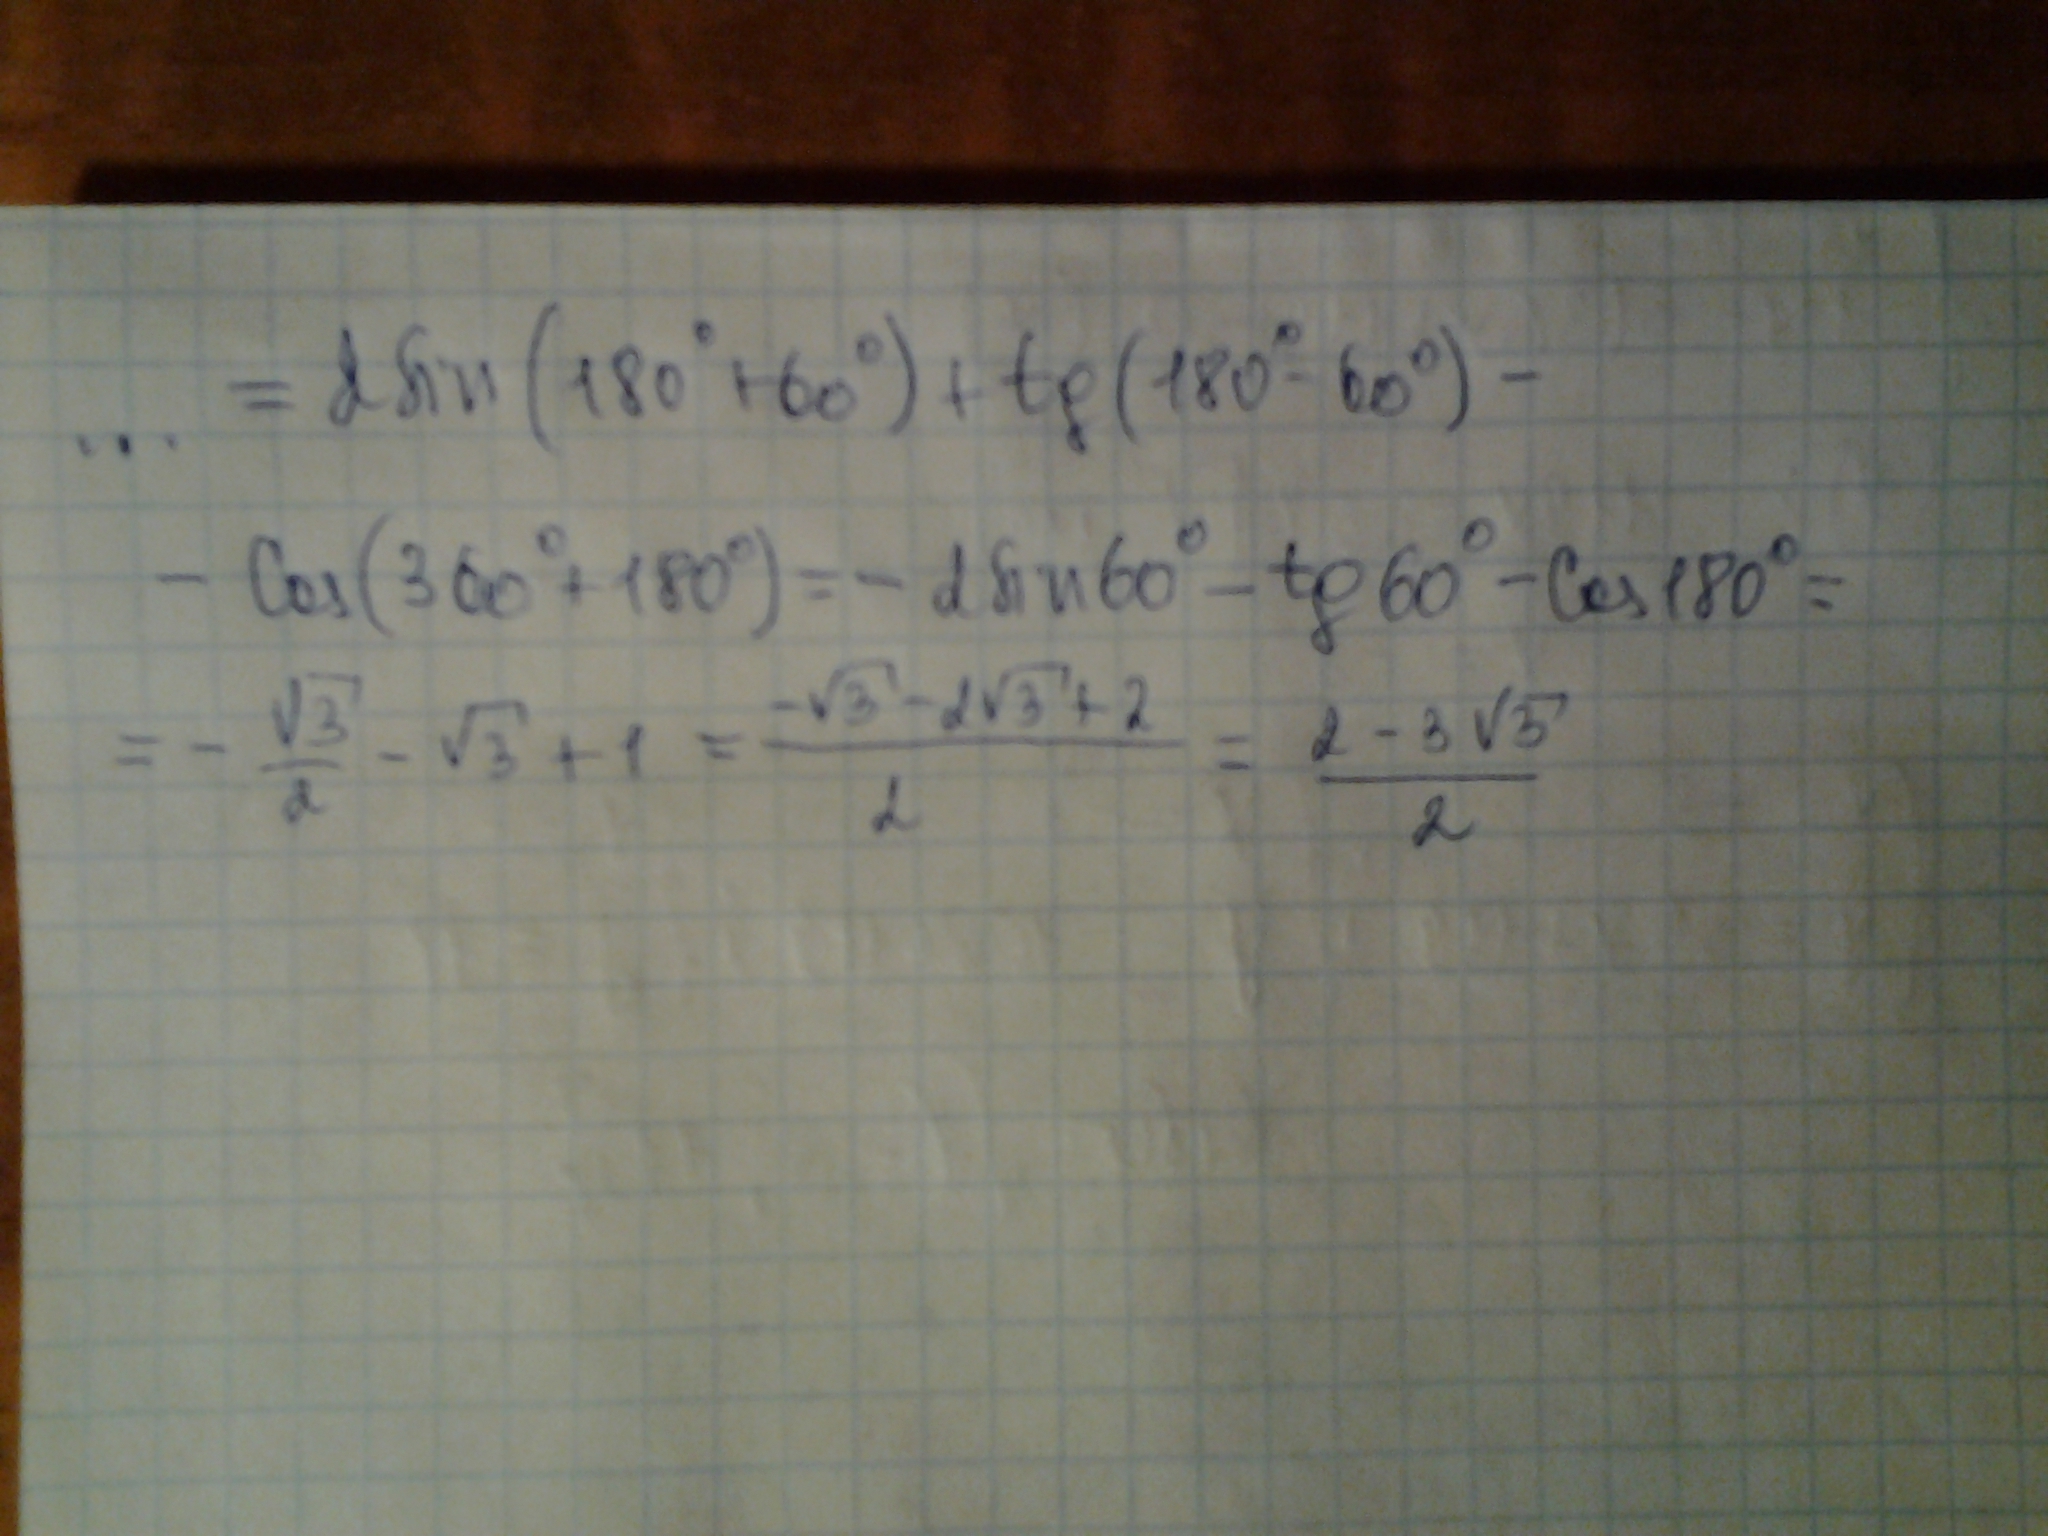 ... = 2sin(180°+60°)+tg(180°-60°)-
- Cos(360°+180°)=-2sin60°-tg60°-Cos180°=
= - √3/2 - √3 + 1 = (-√3-2√3+2)/2 = (2-3√3)/2